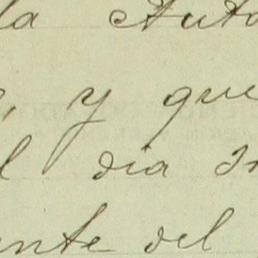 la Auto
, y que
l dia
nte del